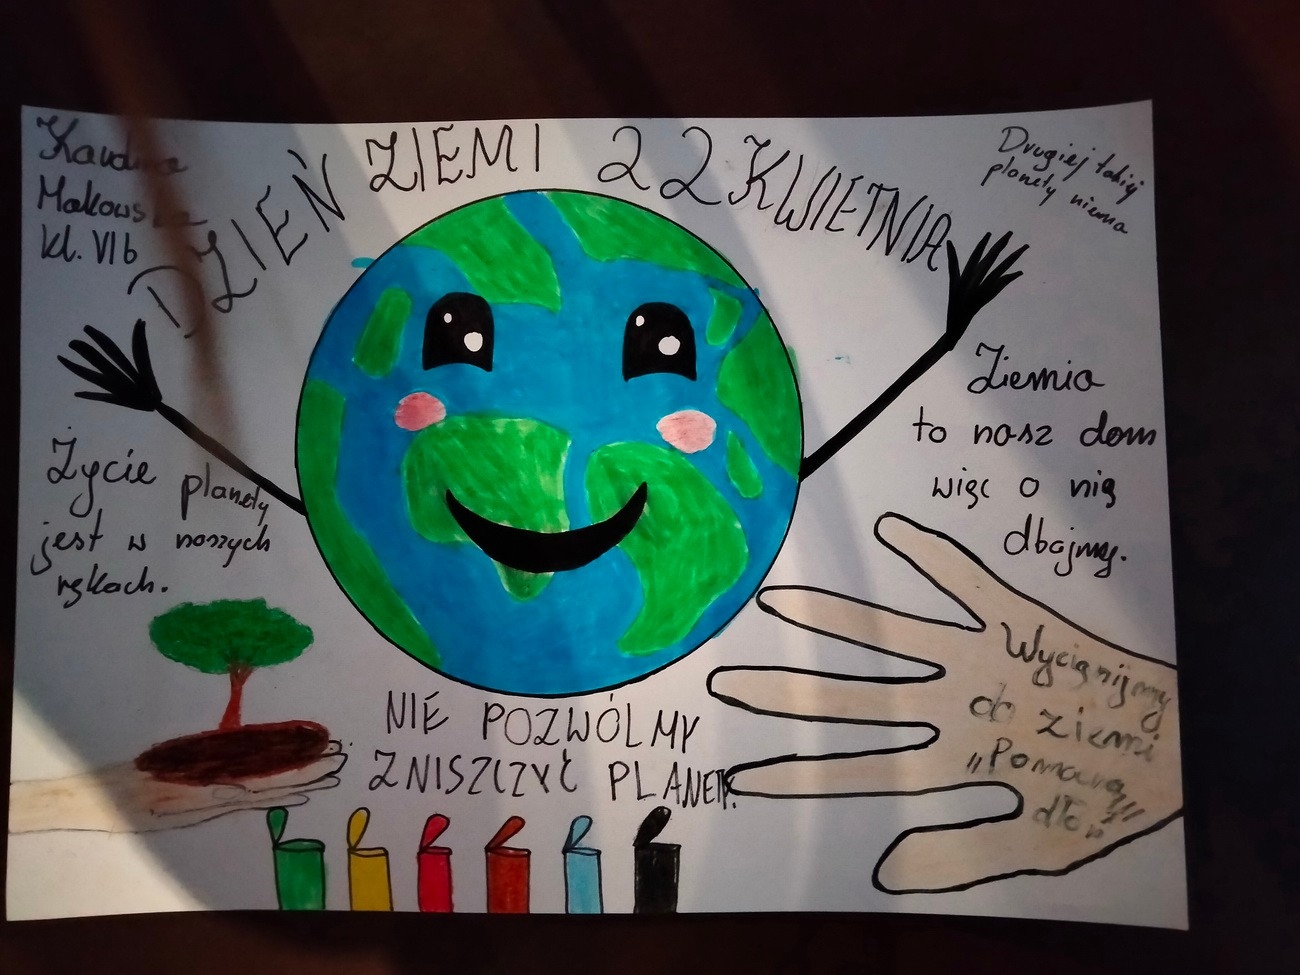 Karolina
Makowska
kl. VIb
DZIEŃ ZIEMI 22 KWIETNIA
Drugiej takiej
planety niema
Życie planety
jest w naszych
rękach.
Ziemia
to nasz dom
więc o nią
dbajmy.
Wyciągnijmy
do ziemi
„Pomocną"
dło"
NIE POZWÓLMY
ZNISZCZYĆ PLANETY.